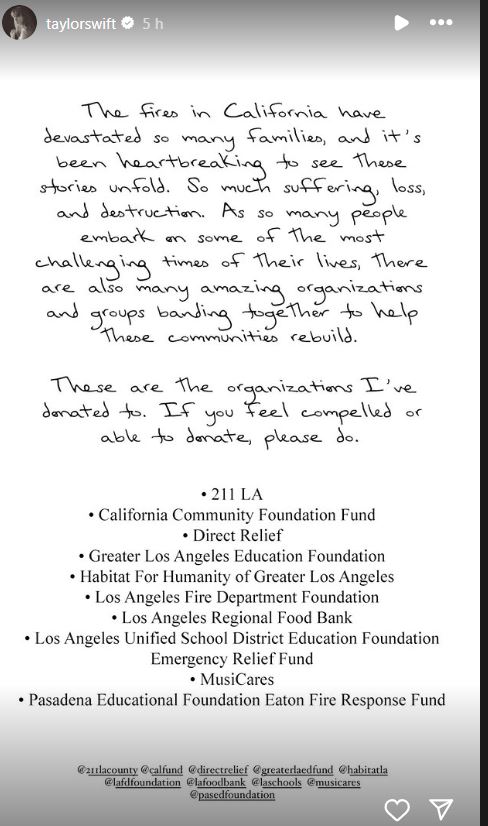 taylorswift 5 h
The fires in California have
devastated so many families, and it's
been heartbreaking to see these
stories unfold. So much suffering, loss,
and destruction. As so many people
embark on some of the most
challenging times of their lives, there
are also many amazing organizations
and groups banding together to help
these communities rebuild.
These are the organizations I've
donated to. If you feel compelled or
able to donate, please do.
• 211 LA
• California Community Foundation Fund
• Direct Relief
• Greater Los Angeles Education Foundation
• Habitat For Humanity of Greater Los Angeles
• Los Angeles Fire Department Foundation
• Los Angeles Regional Food Bank
• Los Angeles Unified School District Education Foundation
Emergency Relief Fund
• MusiCares
• Pasadena Educational Foundation Eaton Fire Response Fund
@211lacounty @calfund @directrelief @greaterlaedfund @habitatla
@lafdfoundation @lafoodbank @laschools @musicares
@pasedfoundation